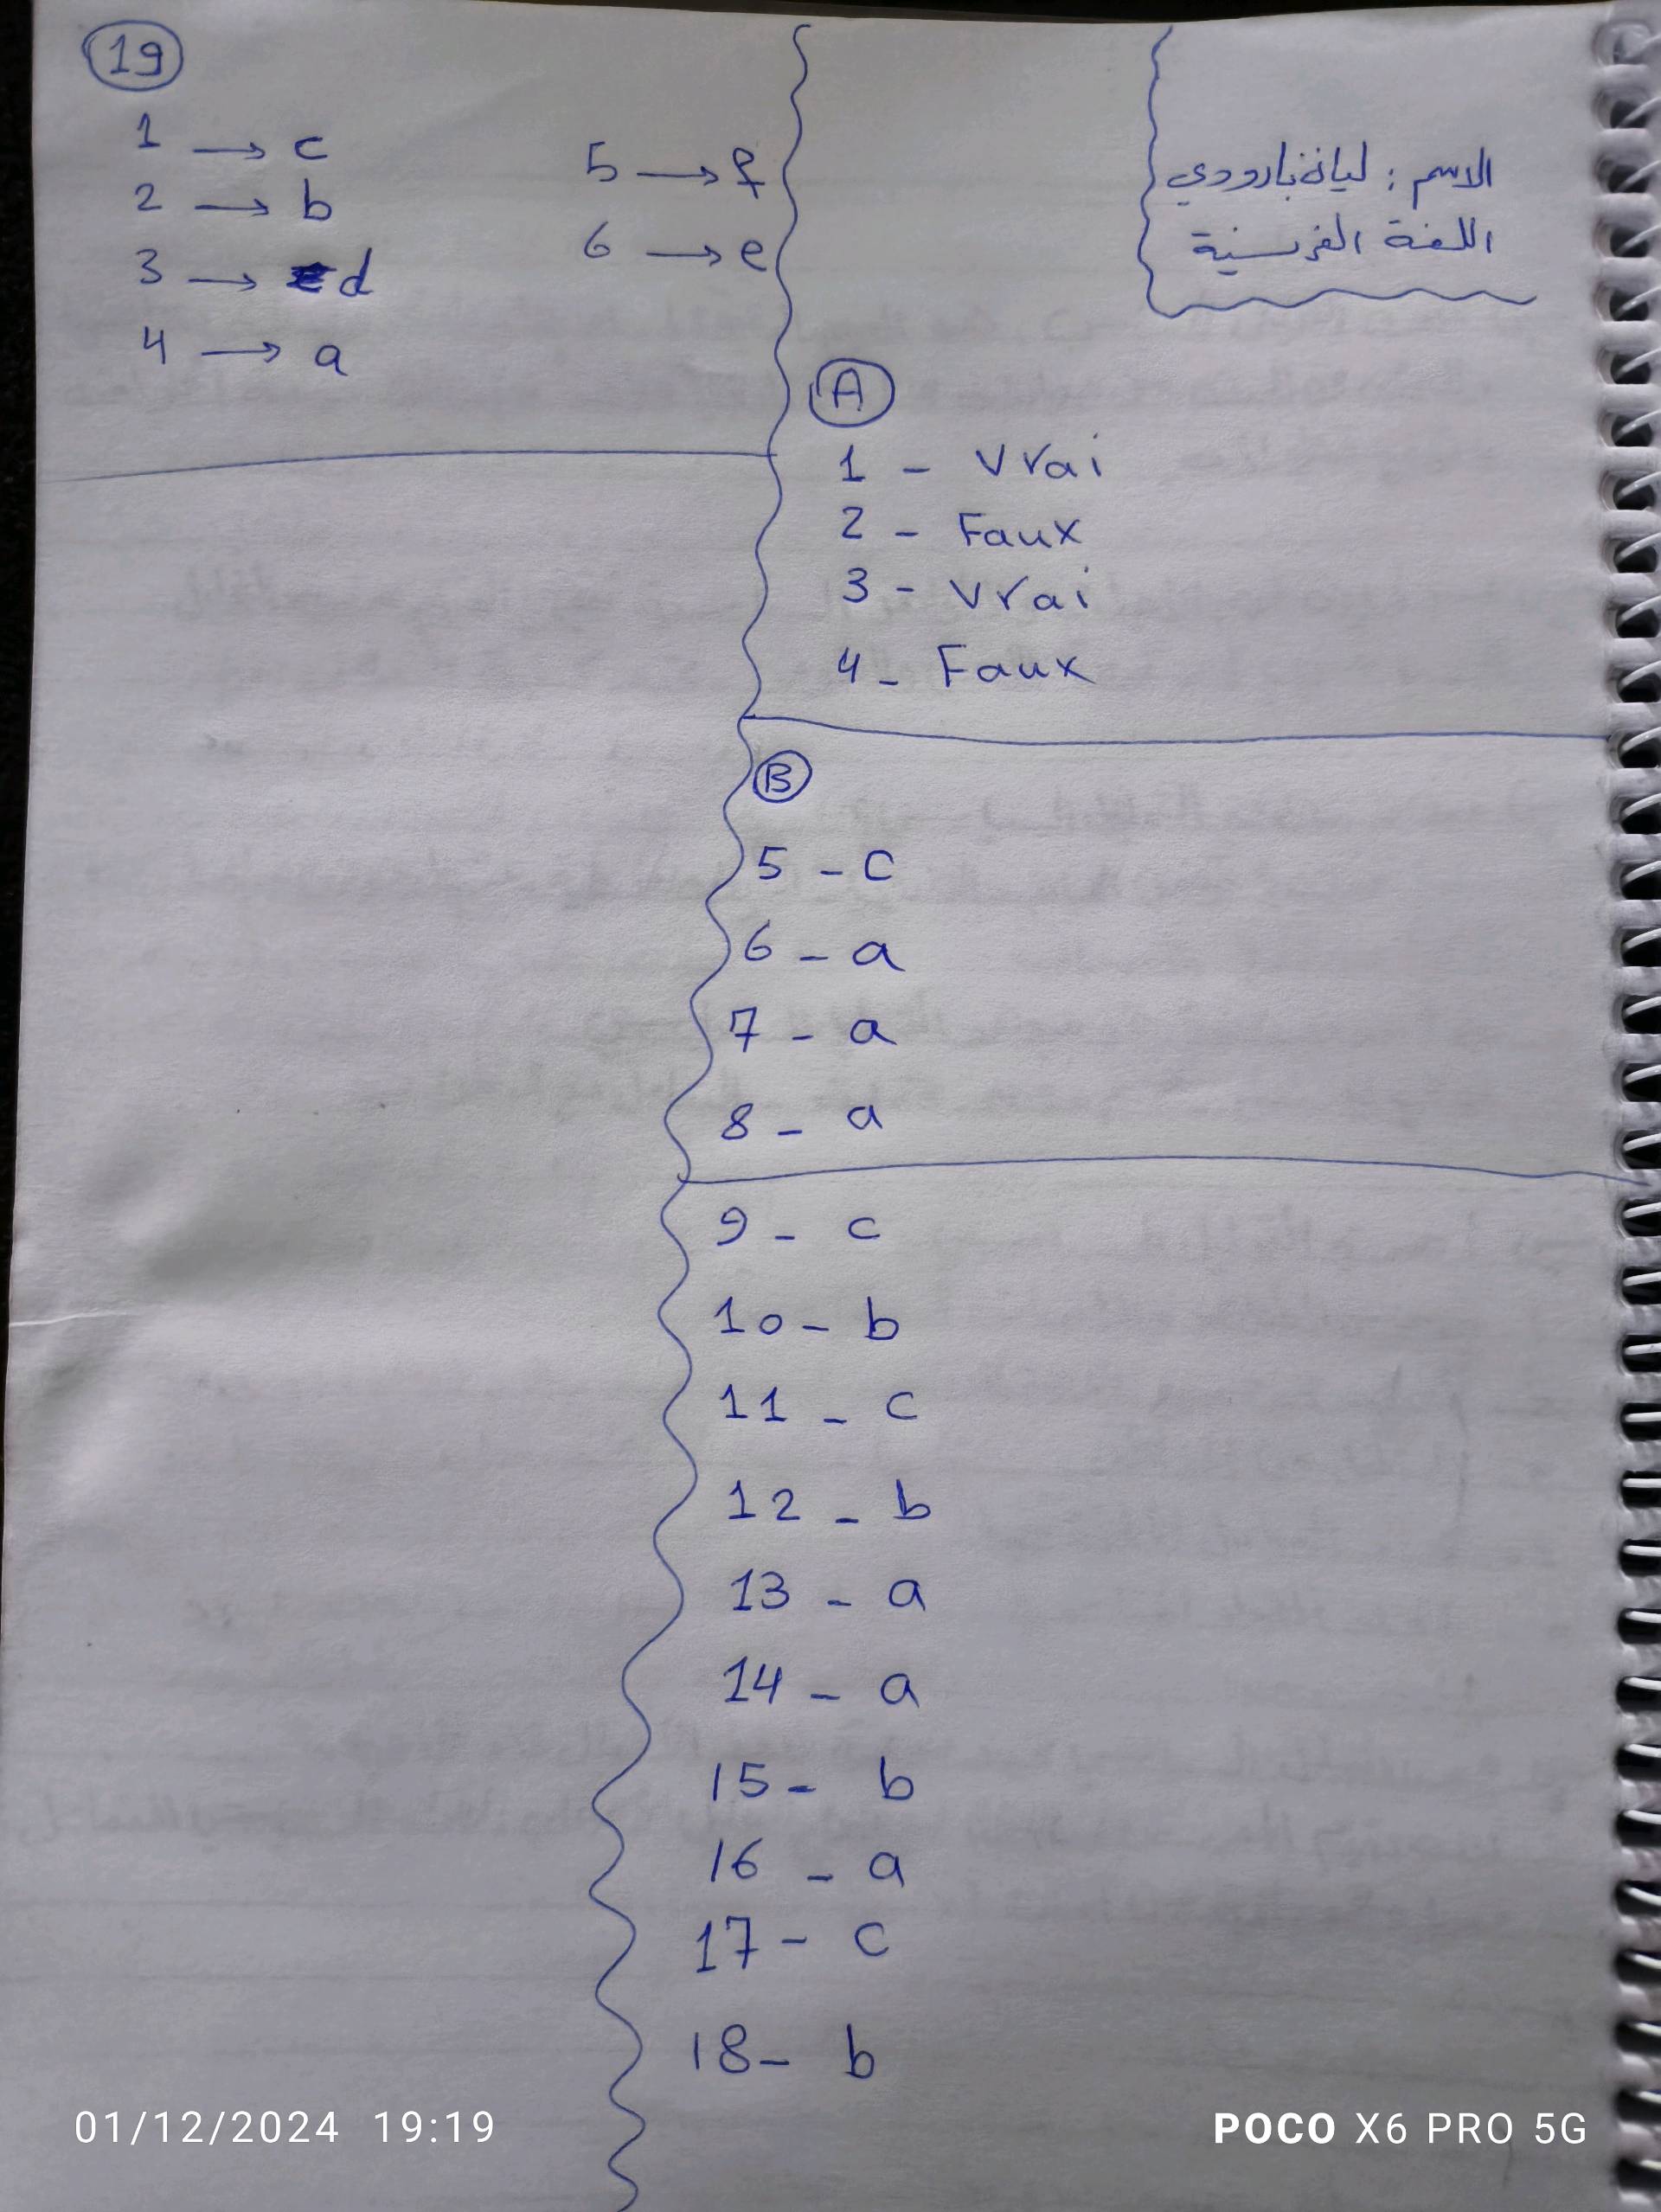 الاسم : ليان بارودي
اللغة الفرنسية
A
1 - Vrai
2 - Faux
3 - Vrai
4 - Faux
B
5 - c
6 - a
7 - a
8 - a
9 - c
10 - b
11 - c
12 - b
13 - a
14 - a
15 - b
16 - a
17 - c
18 - b
19
1 → c
2 → b
3 → d
4 → a
5 → f
6 → e
01/12/2024 19:19
POCO X6 PRO 5G